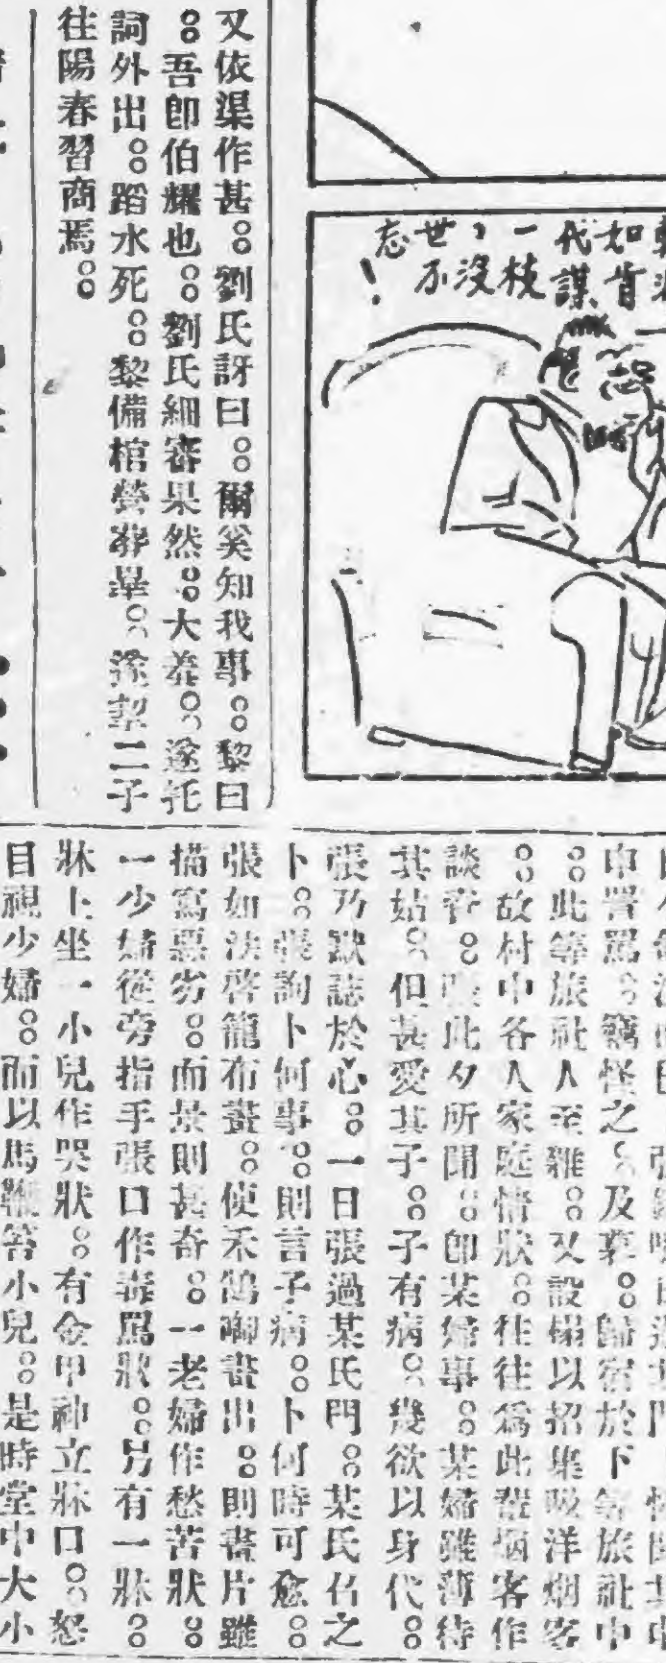 又依渠作甚。劉氏訝曰。爾奚知我事。黎曰
。吾卽伯耀也。劉氏細審果然。大羞。遂托
詞外出。蹈水死。黎備棺營葬畢。遂挈二子
往陽春習商焉。
如肯
代謀
一枝
，沒
世不
忘！
申詈罵。竊怪之。及暮。歸宿於下等旅社中
。此等旅社人至雜。又設榻以招集吸洋烟客
。故村中各人家庭情狀。往往爲此輩烟客作
談香。張此夕所聞。卽某婦事。某婦雖薄待
其姑。但甚愛其子。子有病。幾欲以身代。
張乃默誌於心。一日張過某氏門。某氏召之
卜。張詢卜何事。則言子病。卜何時可愈。
張如法啓籠布畫。使禾鵠啣畫出。則畫片雖
描寫惡劣。而景則甚奇。一老婦作愁苦狀。
一少婦從旁指手張口作毒罵狀。另有一牀。
牀上坐一小兒作哭狀。有金甲神立牀口。怒
目視少婦。而以馬鞭笞小兒。是時堂中大小